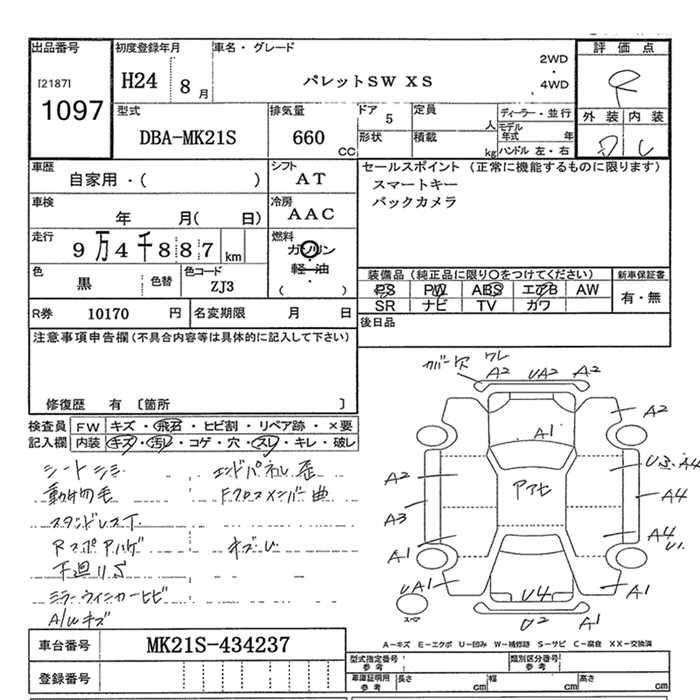 出品番号 初度登録年月 車名・グレード 評価点
[2187] H24 8 月 パレットSW XS 2WD ・ 4WD
1097
型式 排気量 ドア 定員 ディーラー・並行 外装 内装
DBA-MK21S 660 CC 5 人 モデル年式 年
形状 積載 kg ハンドル 左・右
車歴 シフト セールスポイント (正常に機能するものに限ります)
自家用・( ) AT スマートキー
車検 冷房 バックカメラ
年 月( 日) AAC
走行 燃料
9万4千887 km ガソリン
軽・油
( )
色 色替 色コード 装備品(純正品に限り○をつけてください) 新車保証書
黒 ZJ3 PS PW ABS エアB AW 有・無
SR ナビ TV カワ
R券 10170 円 名変期限 月 日 後日品
注意事項申告欄(不具合内容等は具体的に記入して下さい)
修復歴 有 〔箇所 〕
検査員 FW キズ・飛石・ヒビ割・リペア跡・×要
記入欄 内装 キズ・汚レ・コゲ・穴・スレ・キレ・破レ
シートシミ エンドパネル歪
動物毛 Fクロスメンバー曲
スタンドレスT
RスポPハゲ キズU
下廻りS
ミラーウィンカーヒビ
A/Wキズ
カバー欠 ワレ
A2 UA2 A2
A2
A1
A2 アアセ U3 A4
A3 A4
A1 A4 U1
UA1 U4 A1
スペア U2 A1
A－キズ E－エクボ U－凹み W－補修跡 S－サビ C－腐食 XX－交換済
車台番号 MK21S-434237
型式指定番号 参考 類別区分番号 参考
登録番号 車庫証明用 参考 長さ cm 幅 cm 高さ cm